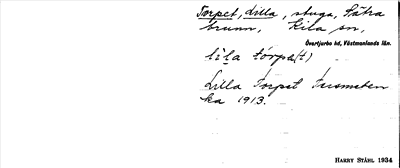 Torpet, lilla, stuga, Sätra
brunn, Kila sn,
Övertjurbo hd, Västmanlands län.
lila tórpe(t)
Lilla Torpet
ka 1913.
HARRY STÅHL 1934